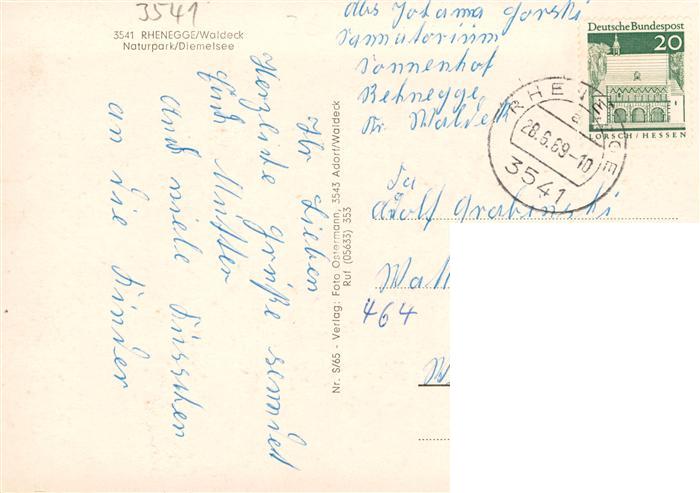 3541
3541 RHENEGGE/Waldeck
Naturpark/Diemelsee
Ihr Lieben
Herzliche Grüße sendet
Euch Mutter
und viele Küsschen
an die Kinder
Nr. S/65 - Verlag: Foto Ostermann, 3543 Adorf/Waldeck
Ruf (05633) 353
Abs Jotama Gorski
Sannatorium
Sonnenhof
Rehnegge
Kr. Waldeck
Deutsche Bundespost
20
LORSCH/HESSEN
RHENEGGE
a
28.6.69-10
3541
Fa
Adolf Grabinski
Wa
464
W